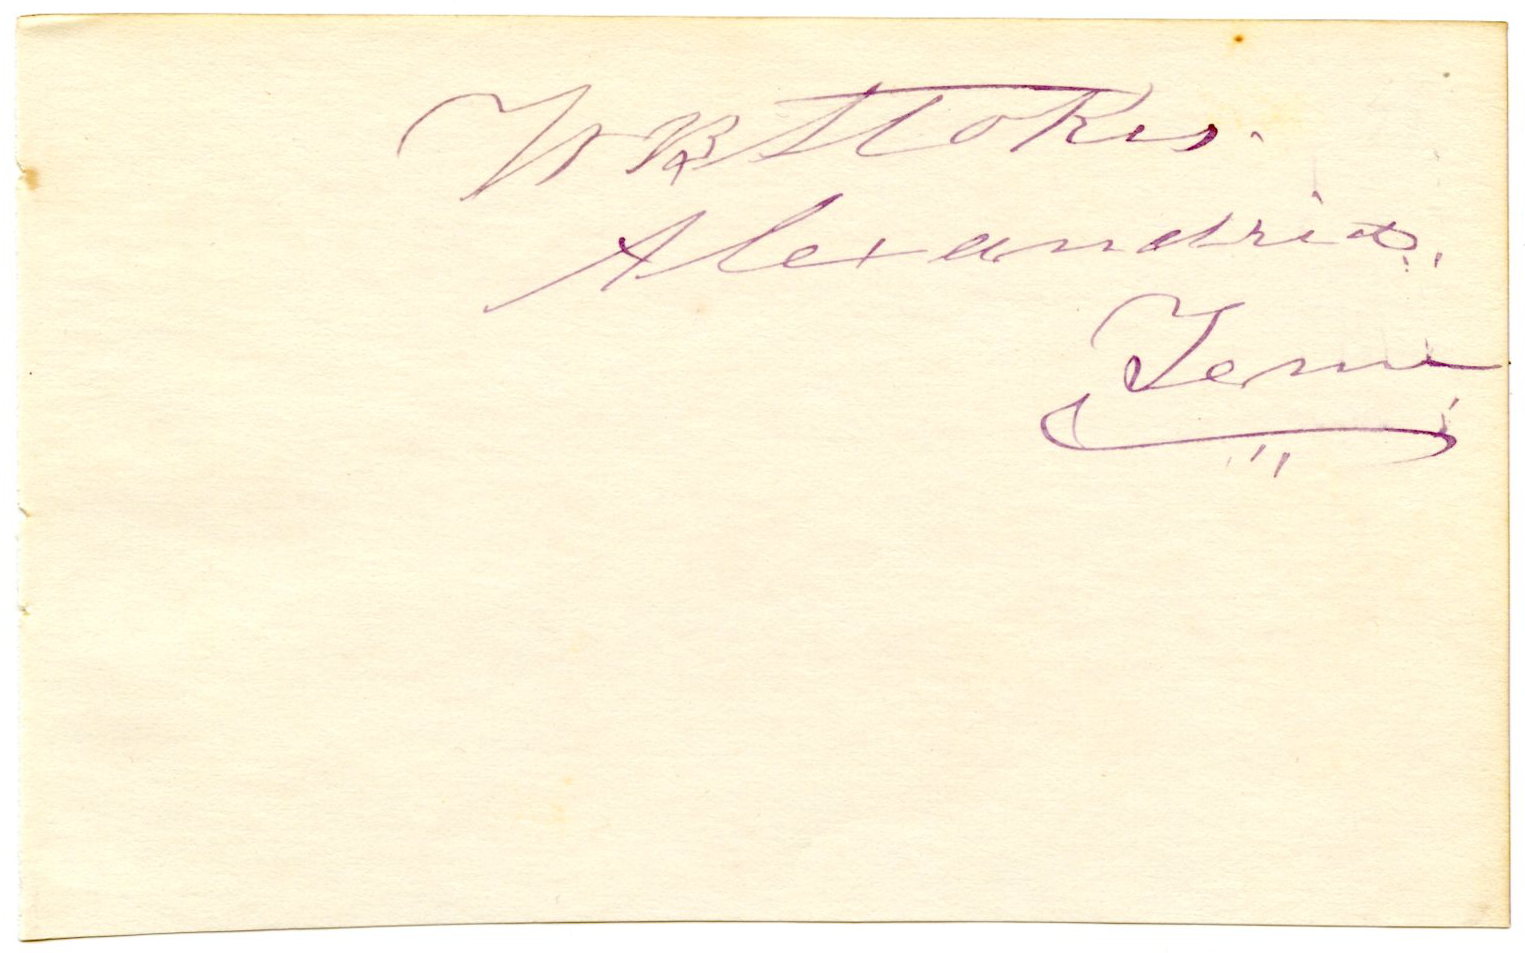 Wm B Stokes.
Alexandria.
Tenn